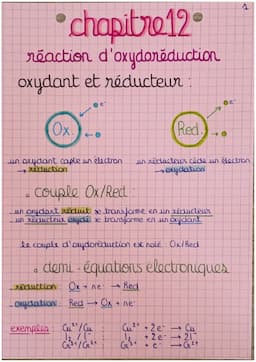 1
chapitre 12
réaction d'oxydoréduction
oxydant et réducteur :
e⁻ e⁻
Ox. Red.
e⁻ e⁻
un oxydant capte un électron un réducteur cède un électron
→ réduction → oxydation
couple Ox/Red :
un oxydant réduit se transforme en un réducteur
un réducteur oxydé se transforme en un oxydant
le couple d'oxydoréduction est noté Ox/Red
demi-équations électroniques
réduction Ox + ne⁻ → Red
oxydation Red → Ox + ne⁻
exemples Cu²⁺/Cu : Cu²⁺ + 2e⁻ → Cu
I₂/I⁻ : I₂ + 2e⁻ → 2I⁻
: + e⁻ →